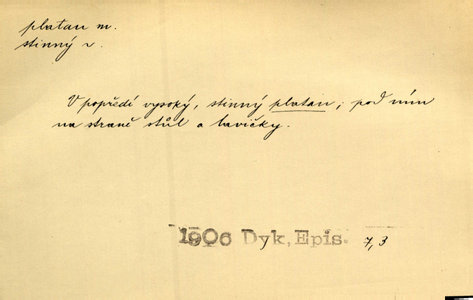 platan m.
stinný v.
V popředí vysoký, stinný platan; pod ním
na straně stůl a lavičky.
1906 Dyk, Epis. 7,3